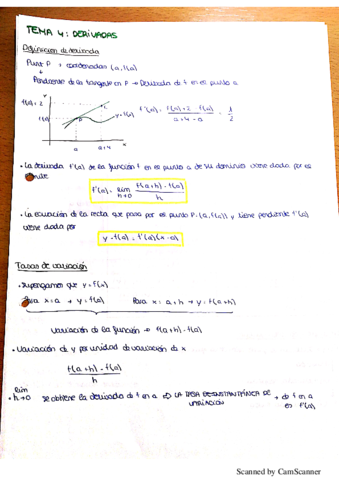 TEMA 4: DERIVADAS
Definición de derivada
Punto P → coordenadas (a, f(a))
↓
Pendiente de la tangente en P → Derivada de f en el punto a
f(a)+2
f(a)
P
y=f(x)
a
a+4
f'(a) = f(a)+2 - f(a) / a+4-a = 1/2
• La derivada f'(a) de la función f en el punto a de su dominio viene dada por el
límite
f'(a) = lim h→0 f(a+h)-f(a) / h
• La ecuación de la recta que pasa por el punto P(a, f(a)) y tiene pendiente f'(a)
viene dada por
y-f(a) = f'(a)(x-a)
Tasas de variación
• Supongamos que y=f(x)
Para x=a → y=f(a) Para x=a+h → y=f(a+h)
Variación de la función → f(a+h)-f(a)
• Variación de y por unidad de variación de x
f(a+h)-f(a) / h
• lim h→0 se obtiene la derivada de f en a ⇔ LA TASA INSTANTÁNEA DE VARIACIÓN → de f en a es f'(a).
Scanned by CamScanner